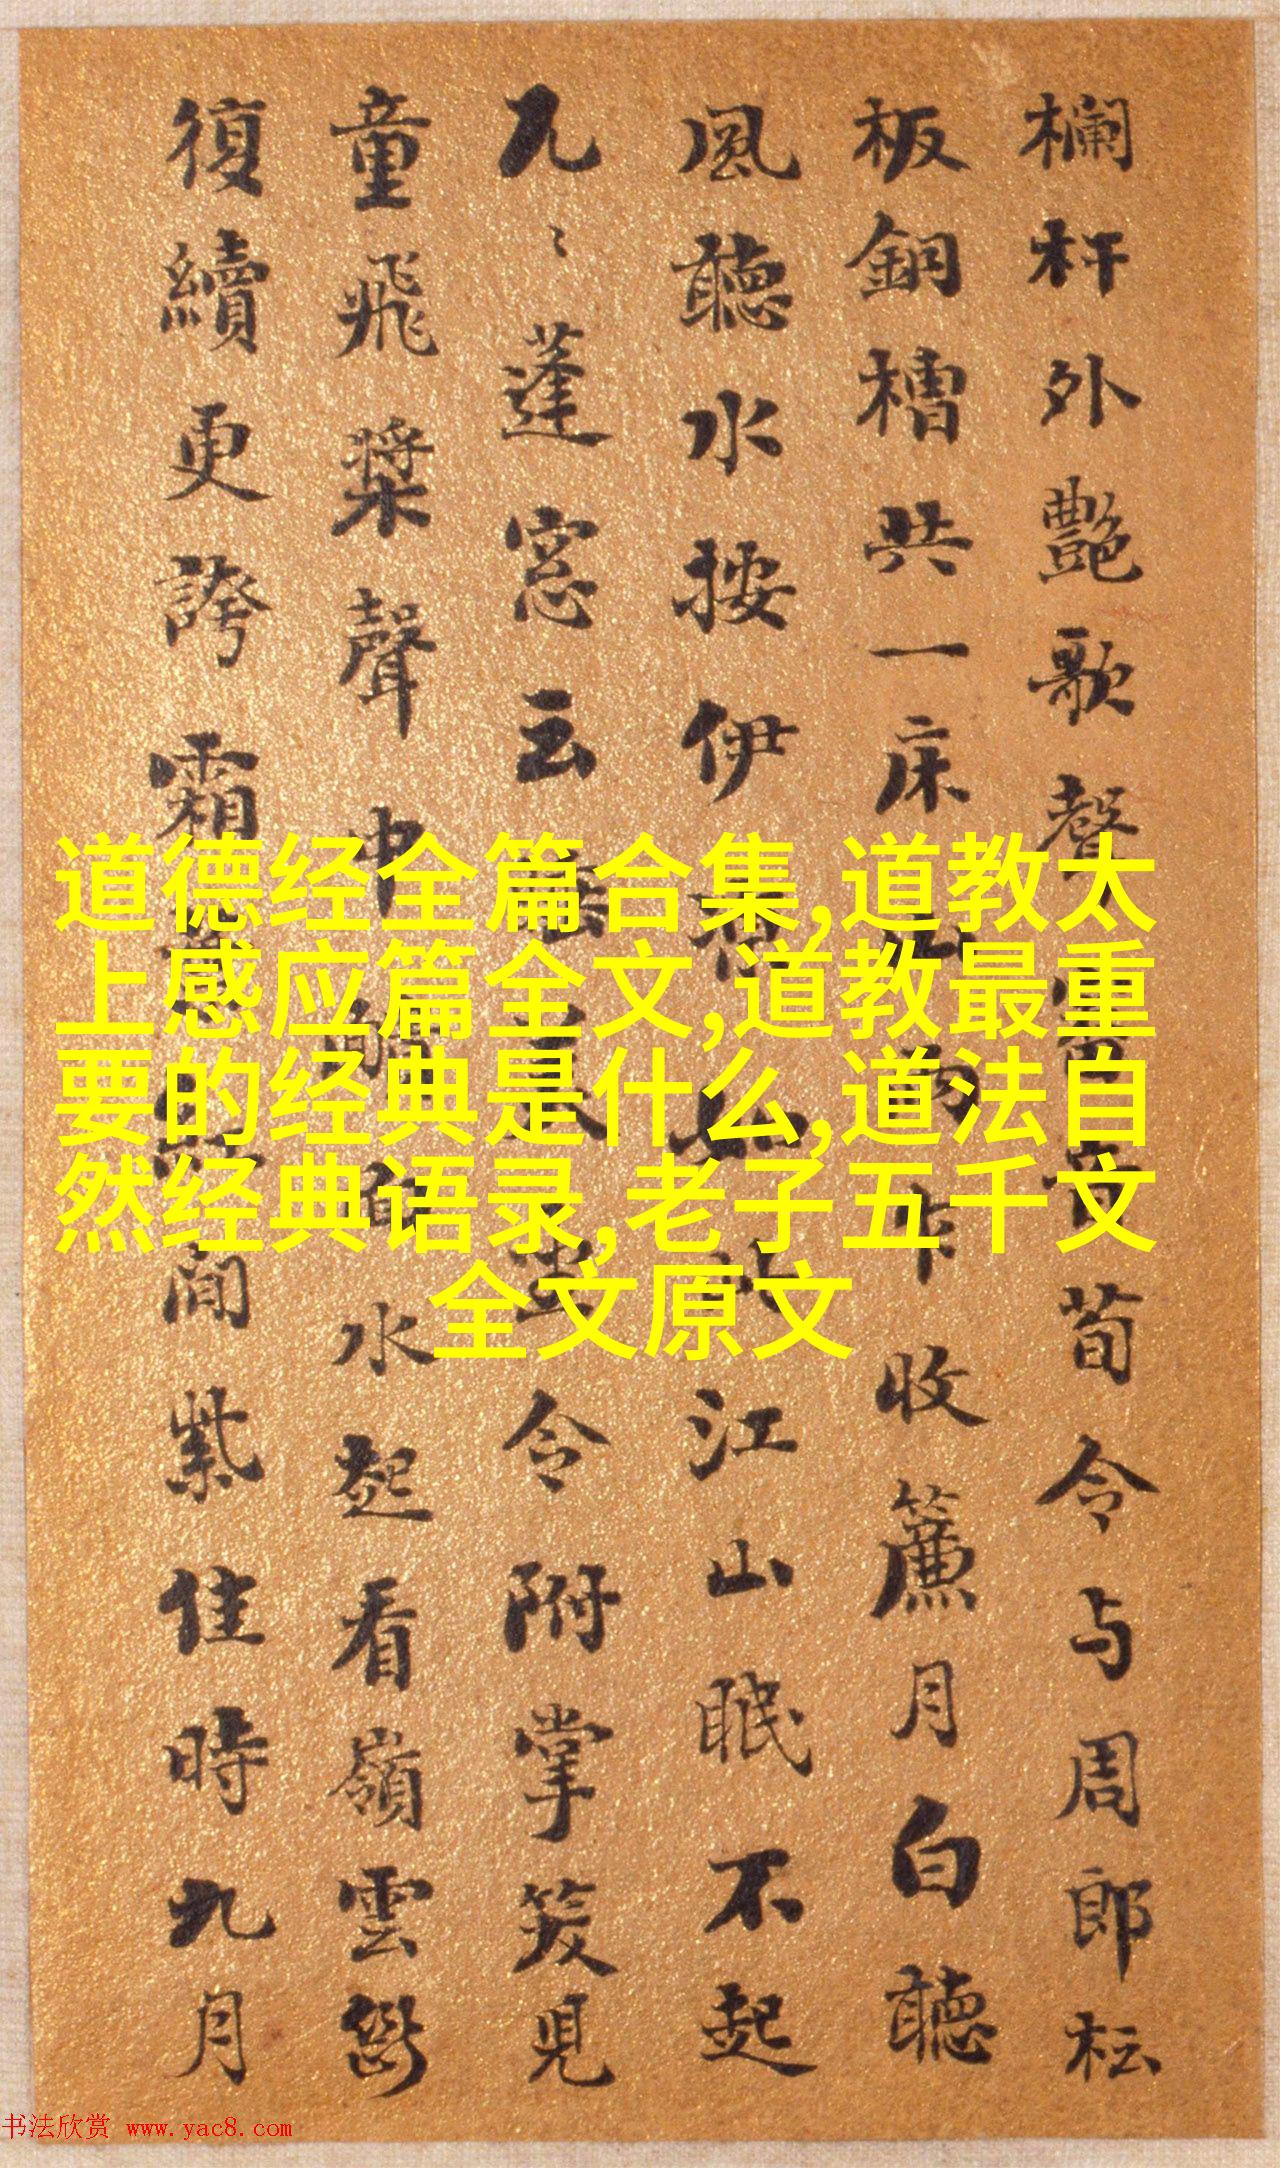 欄杆外艷歌聲荀令与周郎枟
板銅槽共一床收簾月白聽
風聽水按伊江山眠不起
凡〻蓬窓云坐令附掌笑見
童飛槳聲中水起看嶺雲
復續更誇霜間紫佳時九月
道德经全篇合集,道教太
上感应篇全文,道教最重
要的经典是什么,道法自
然经典语录,老子五千文
全文原文
书法欣赏 www.yac8.com